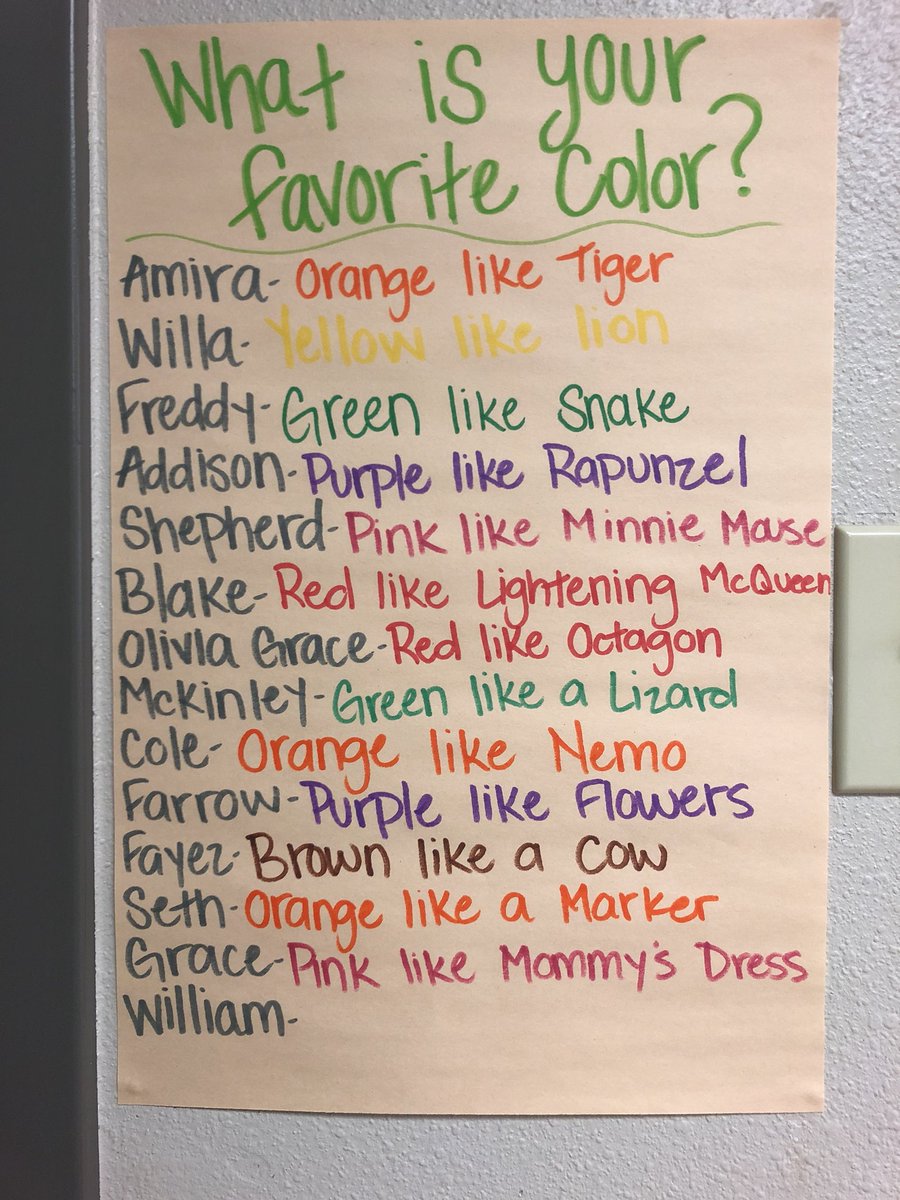 What is your
favorite Color?
Amira- Orange like Tiger
Willa- Yellow like lion
Freddy- Green like Snake
Addison- Purple like Rapunzel
Shepherd- Pink like Minnie Mouse
Blake- Red like Lightening McQueen
Olivia Grace- Red like Octagon
McKinley- Green like a Lizard
Cole- Orange like Nemo
Farrow- Purple like Flowers
Fayez- Brown like a Cow
Seth- Orange like a Marker
Grace- Pink like Mommy's Dress
William-